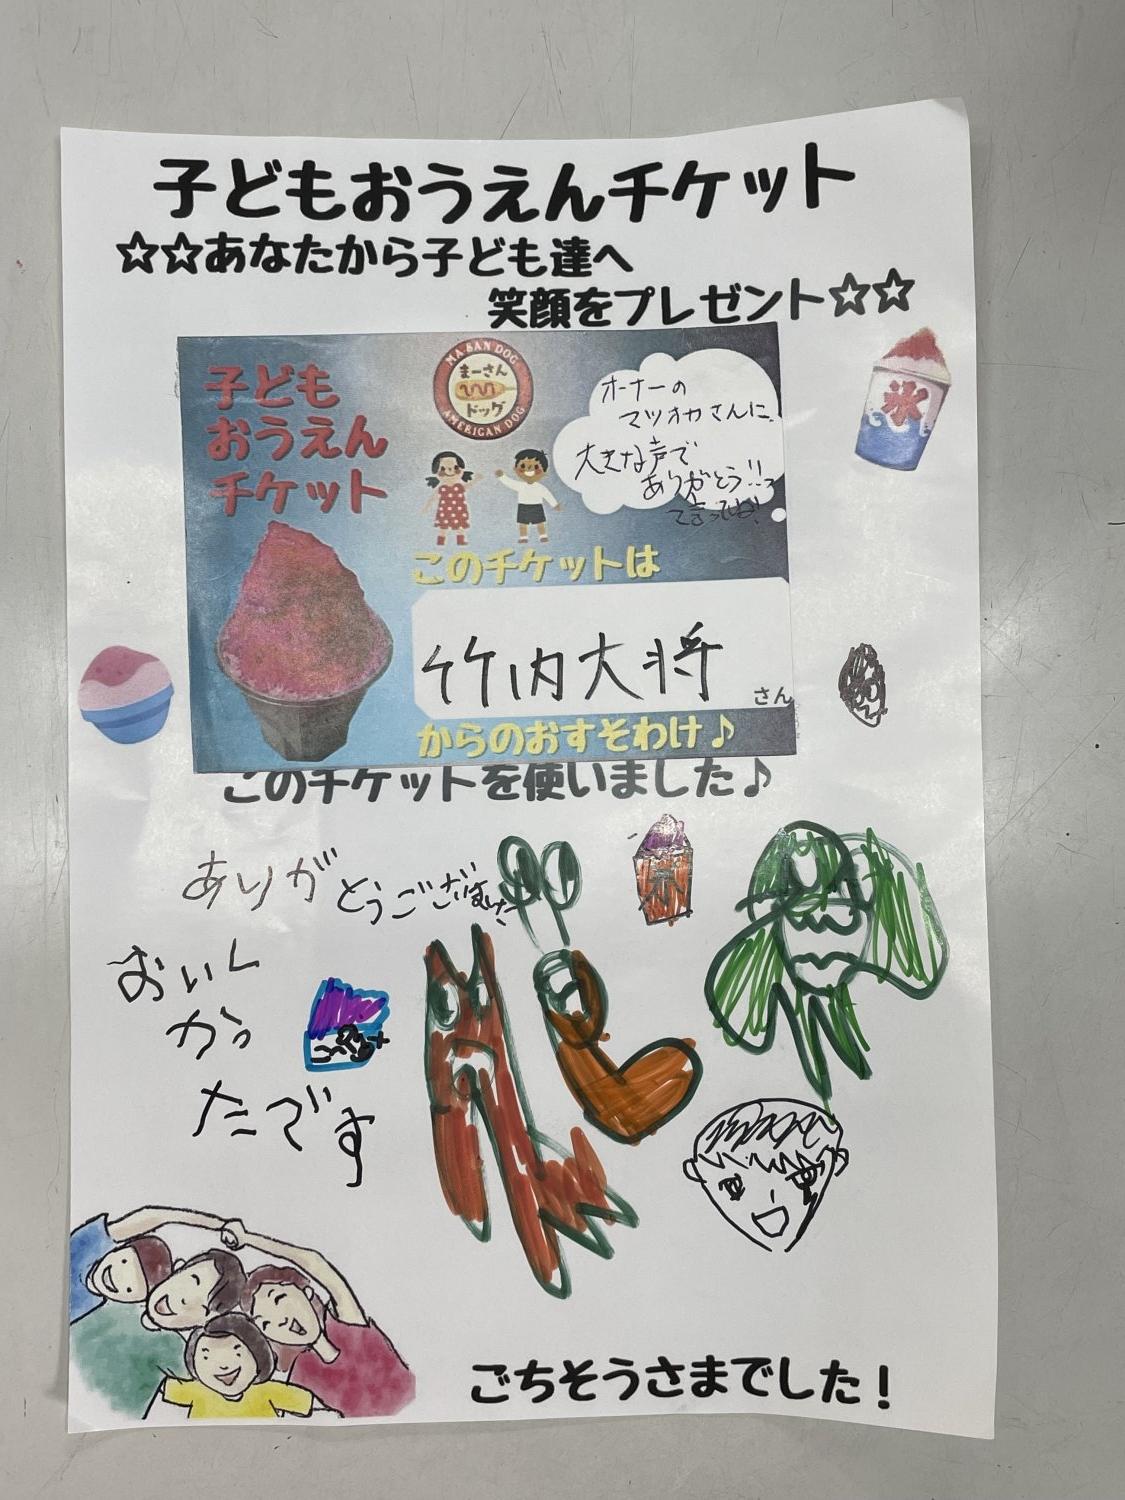 子どもおうえんチケット
☆☆あなたから子ども達へ
笑顔をプレゼント☆☆
子ども
おうえん
チケット
MA SAN DOG
まーさん
ドッグ
AMERICAN DOG
オーナーの
マツオカさんに、
大きな声で
ありがとう!!っ
て言ってね!
氷
このチケットは
竹内大将
さん
からのおすそわけ♪
このチケットを使いました♪
ありがとうござい
おいし
かっ
たです
氷
ごちそうさまでした!